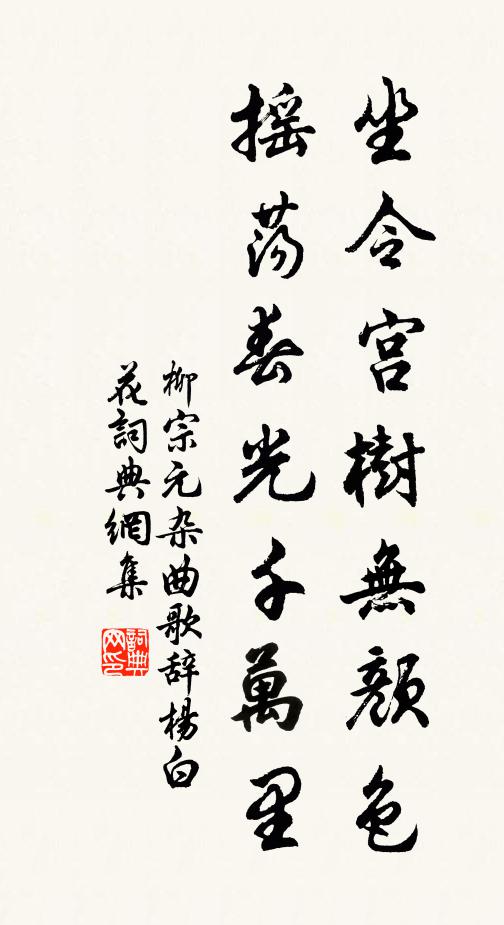 坐令宮樹無顏色
搖蕩春光千萬里
柳宗元杂曲歌辞楊白
花詞典網集
詞典
网印